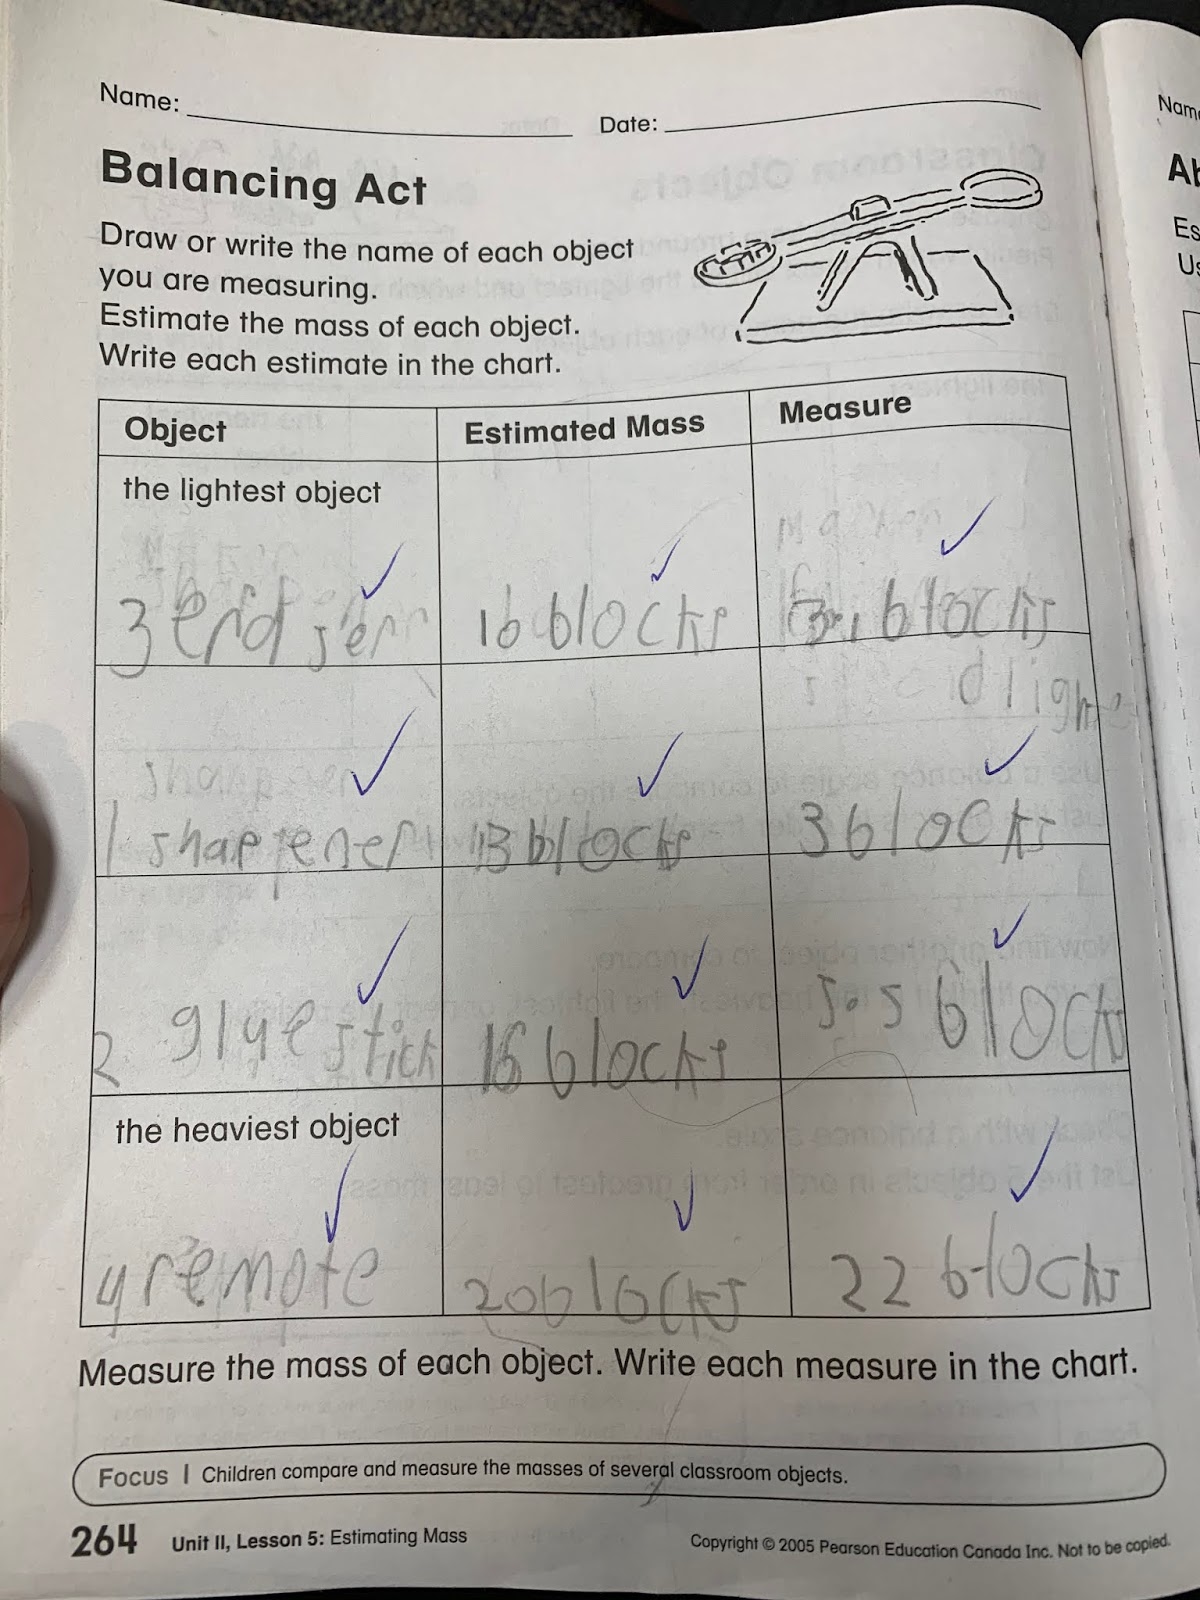 Name:
Date:
Balancing Act
Draw or write the name of each object
you are measuring.
Estimate the mass of each object.
Write each estimate in the chart.
Object Estimated Mass Measure
the lightest object
3 16 blocks blocks
1 sharpener 13 blocks 3 blocks
2 glue stick 16 blocks 5.5 blocks
the heaviest object
4 remote 20 blocks 22 blocks
Measure the mass of each object. Write each measure in the chart.
FOCUS | Children compare and measure the masses of several classroom objects.
264 Unit II, Lesson 5: Estimating Mass
Copyright © 2005 Pearson Education Canada Inc. Not to be copied.
Es